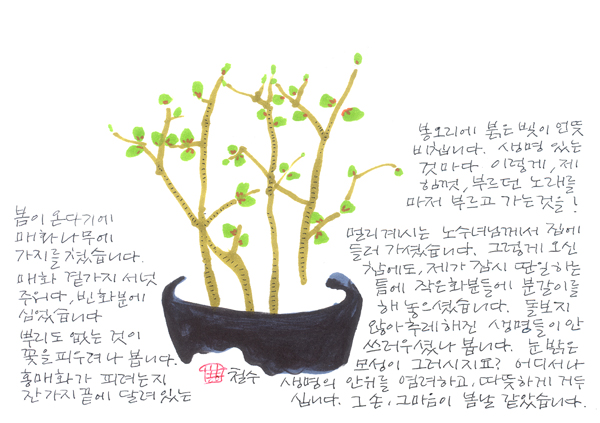 봄이 온다기에
매화나무에
가지를 쳤습니다.
매화 곁가지 서넛
주워다, 빈화분에
심었습니다
뿌리도 없는 것이
꽃을 피우려나 봅니다.
홍매화가 피려는지
잔가지끝에 달려있는
봉오리에 붉은 빛이 언뜻
비칩니다. 생명 있는
것마다 이렇게, 제
힘껏, 부르던 노래를
마저 부르고 가는것을!
멀리계시는 노수녀님께서 집에
들러 가셨습니다. 그렇게 오신
참에도, 제가 잠시 딴일하는
틈에 작은화분들에 분갈이를
해 놓으셨습니다. 돌보지
않아 추레해진 생명들이 안
쓰러우셨나 봅니다. 눈 밝은
모성이 그러시지요? 어디서나
생명의 안위를 염려하고, 따뜻하게 거두
십니다. 그 손, 그마음이 봄날 같았습니다.
철수